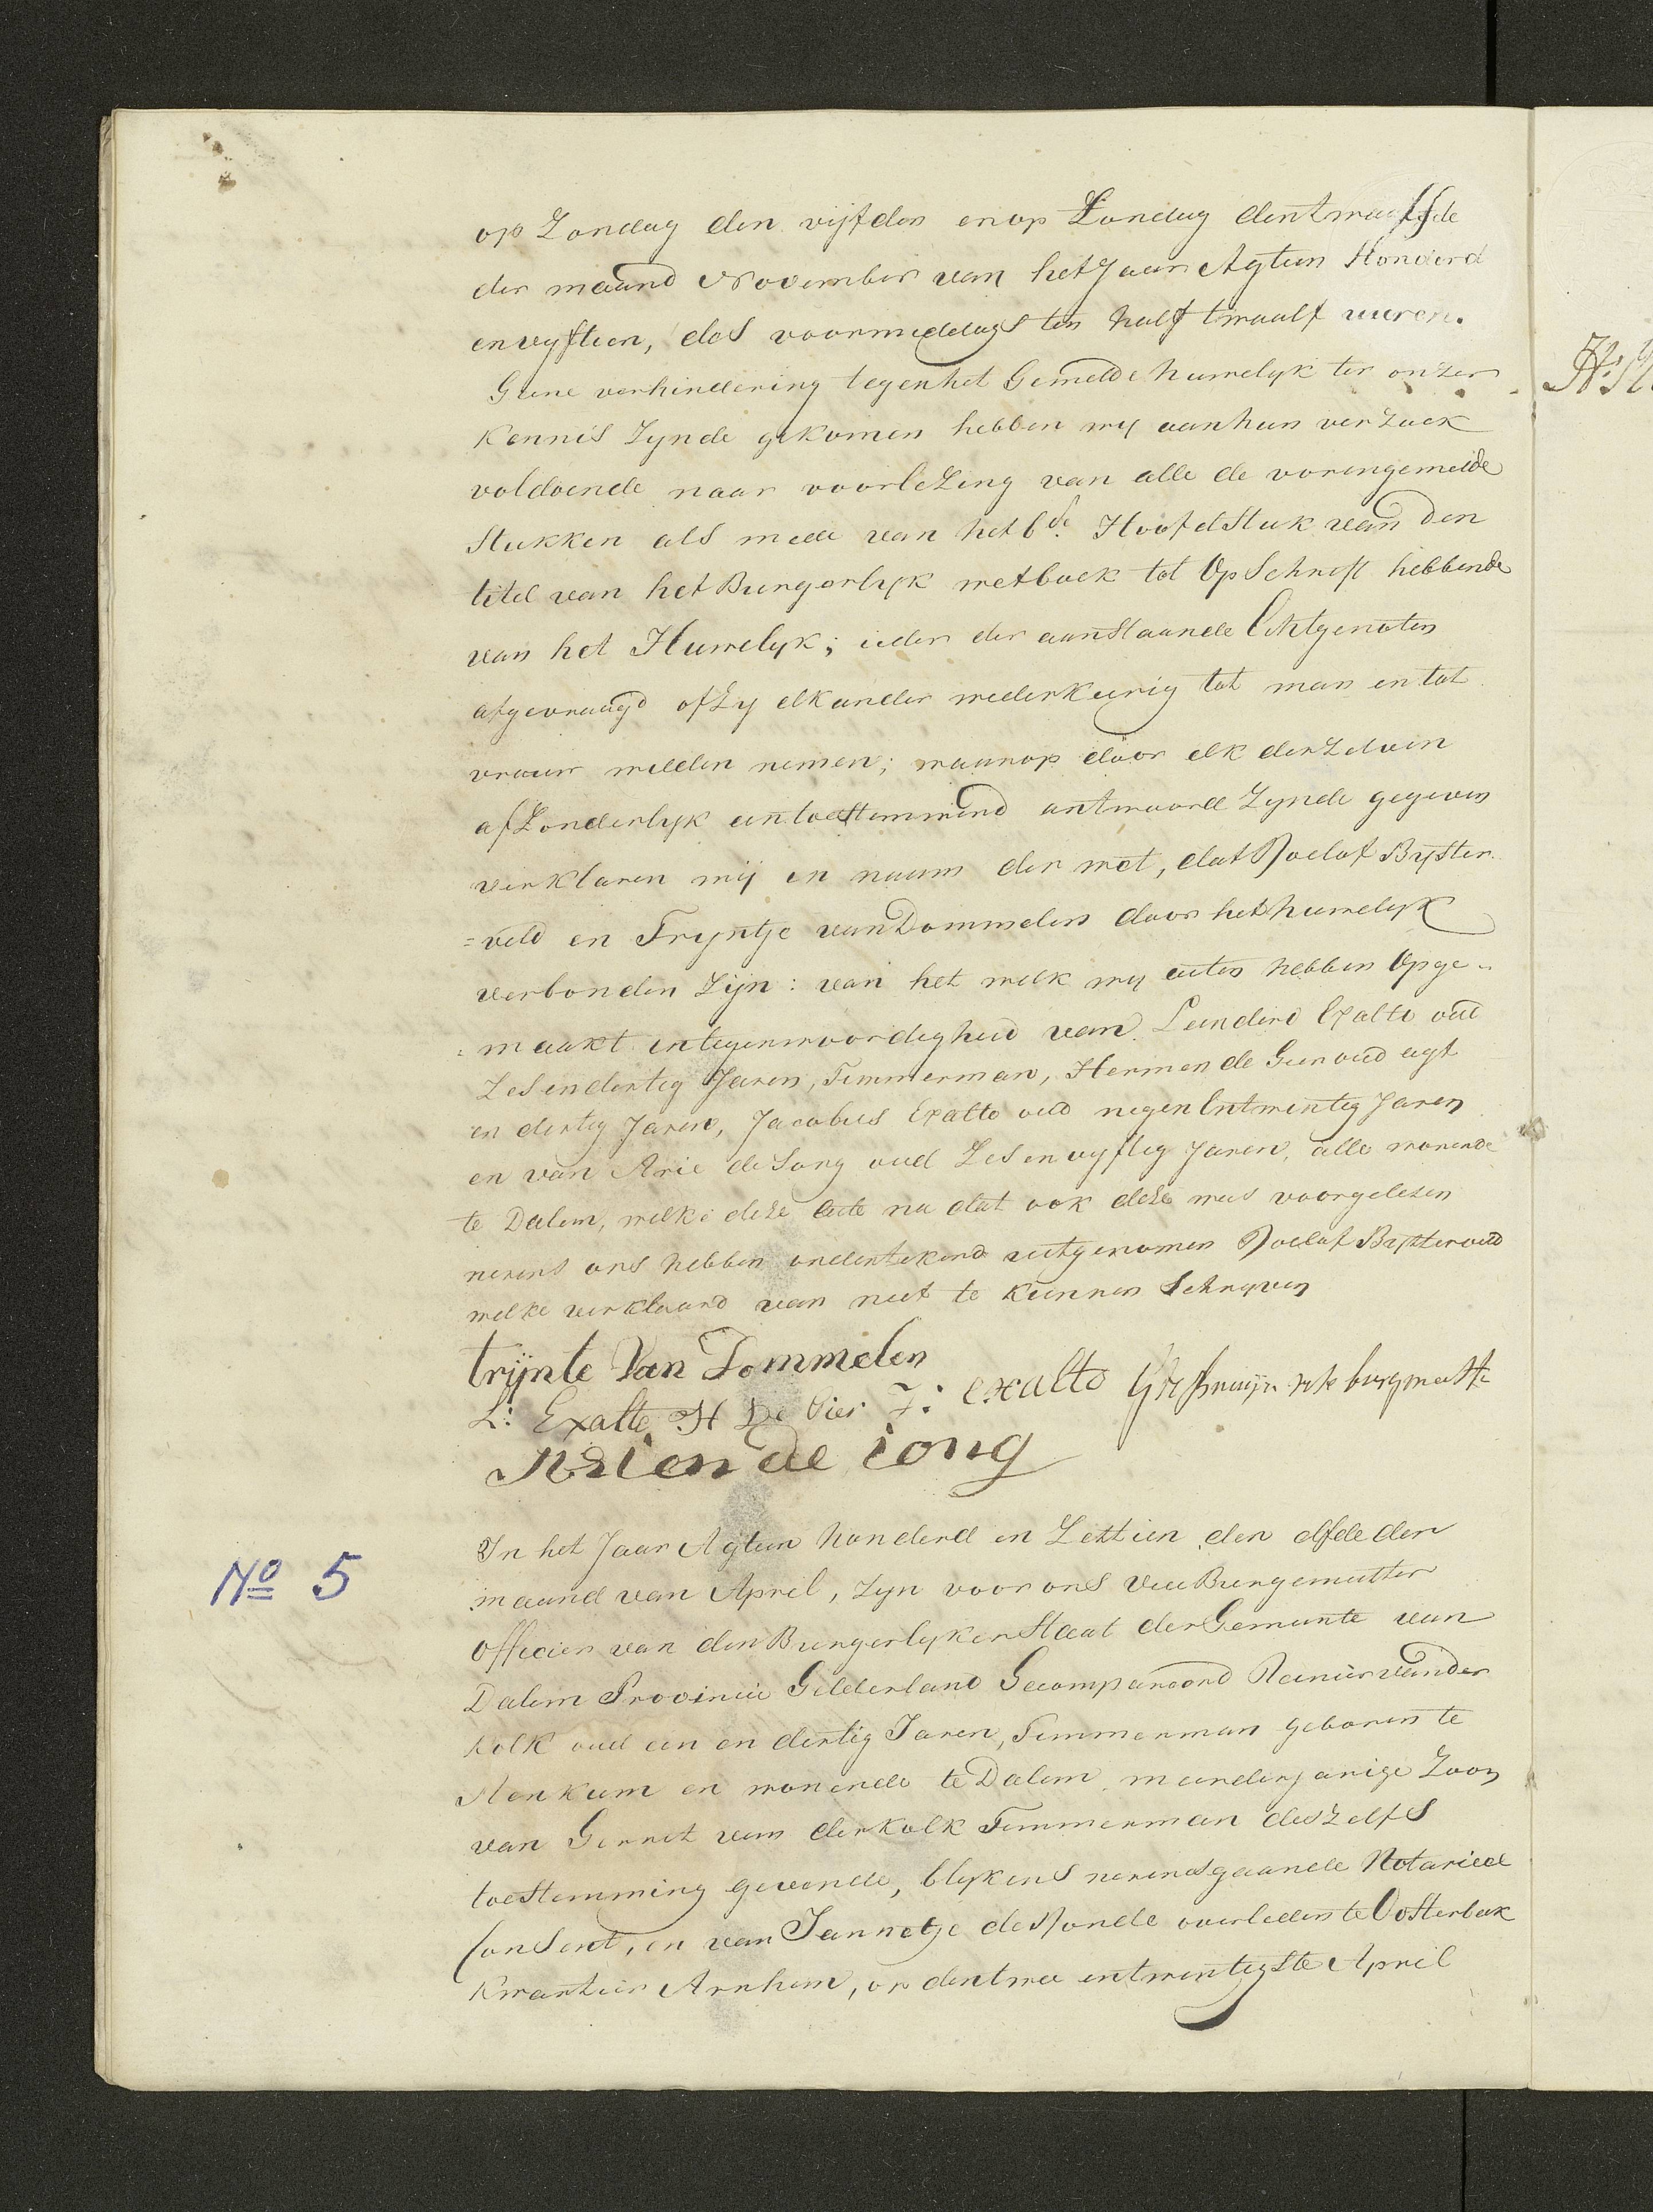 op Zondag den vijfden en op Zondag den twaalfde
der maand November van het Jaar Agtien Honderd
en vyftien, des voormiddags ten half twaalf uuren.
Geene verhindering tegen het Gemelde huwelyk ter onzer
Kennis Zynde gekomen hebben wy aan hun verzoek
voldoende naar voorlezing van alle de vorengemelde
Stukken als mede van het 6de Hoofdstuk van den
titel van het Burgerlyk wetboek tot Opschrift hebbende
van het Huwelyk; ieder der aanstaande Echtgenoten
afgevraagd of Zy elkander wederkeerig tot man en tot
vrouw wilden nemen; waarop door elk derzelven
afzonderlyk een toestemmend antwoord Zynde gegeven
verklaren wij in naam der wet, dat Roelof Byster
=veld en Tryntje van Dommelen door het huwelyk
verbonden Zijn: van het welk wy acten hebben Opge-
=maakt in tegenwoordigheid van Leendert Exalto oud
Zes en dertig Jaren, Timmerman, Herman de Gier oud agt
en dertig Jaren, Jacobus Exalto oud negen Entwentig Jaren
en van Arie de Jong oud Zes en vyftig Jaren, alle wonende
te Dalem, welke deze acte na dat ook deze was voorgelezen
nevens ons hebben ondertekend uitgenomen Roelof Bysterveld
welke verklaard van niet te Kunnen Schryven
trijnte Van Dommelen
L: Exalto H De Gier J: exalto burgmeste
Arien de iong
No 5
In het Jaar Agtien honderd en Zestien den elfde der
maand van April, Zyn voor ons Vice Burgemeester
Officier van den Burgerlyken Staat der Gemeente van
Dalem Provincie Gelderland Gecompareerd Reinier van der
Kolk oud een en dertig Jaren, Timmerman geboren te
Renkum en wonende te Dalem meerderjarige Zoon
van Gerret van der Kolk Timmerman deszelfs
toestemming gevende, blykens nevensgaande Notarieel
Consent, en van Jannetje de Ronde overleden te Oosterbeek
Kwartier Arnhem, op den twee entwentigste April